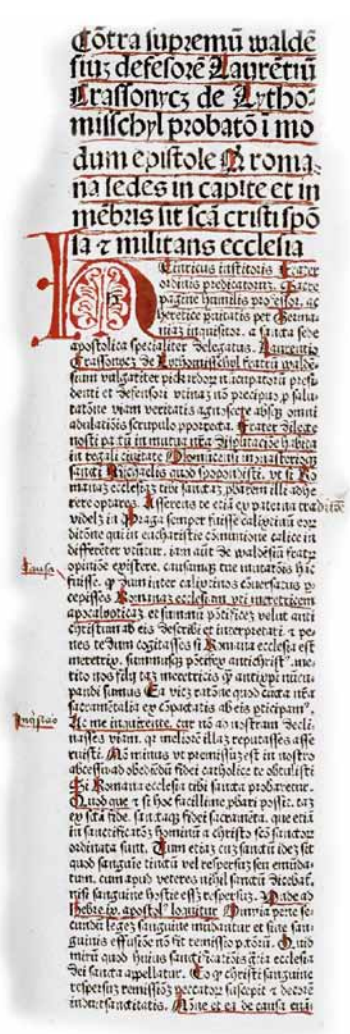 Cōtra supremū waldē
siuʒ defēsorē Laurētiū
Crassonycʒ de Lytho-
misschyl probatō ī mo
dum epistole Q roma-
na sedes in capite et in
mēbris sit scā cristi spō
sa ⁊ militans ecclesia
Heinricus institoris frater
ordinis predicatorū. sacre
pagine humilis professor. ac
heretice prauitatis per Germa-
niaʒ inquisitor. a sancta sede
apostolica specialiter delegatus. Laurentio
Crassonycʒ de Lythomisschyl fratrū walde-
sium vulgariter pickardoꝝ nūcupatoriū presi
denti et defensori vtinaʒ nō precipuo p salu
tatōne viam veritatis agnoscere absqʒ omni
adulatiōis scrupulo pporrecta. Frater dilecte
nosti pa tū in mutua nr̄a disputacōe habita
in regali ciuitate Olomucensi in monasterioqʒ
sancti Michaelis quod spopondisti. vt si Ro
manaʒ ecclesiaʒ tibi sanctaʒ pbarem illi adhe
rere optares. Asserens te etiā ex paterna traditōe
videlʒ in Praga semper fuisse calixtinū eoꝝ
ditōne qui in eucharistie cōmunione calice in
differēter vtūtur. iam aūt de waldēsiū fratꝝ
opiniōe existere. causamqʒ tue mutatōis hīc
causa
fuisse. q dum inter calixtinos cōuersatus p
cepisses Romanaʒ ecclesiam vti meretricem
apocalipticaʒ et summū pōtificeʒ velut anti
christum ab eis describi et interpretari ⁊ pe-
nes te dum cogitasses si Romana ecclesia est
meretrix. summusqʒ pōtifex antichrist⁹. me-
rito nos filij taʒ meretricis q̄ antixpi nūcu-
pandi sumus Ea vicʒ ratōne quod cūcta nr̄a
sacramētalia ex cōpactatis ab eis pticipam⁹.
Ac me inquirente. cur nō ad nostram decli-
nasses viam. q̄ meliorē illaʒ reputasses asse
ruisti. Nō minus vt promissuʒ est in nostro
abcessu ad obediēdū fidei catholice te obtulisti
Si Romana ecclesia tibi sancta probaretur.
Quod que ⁊ si hoc facillime pbari possit. taʒ
ex scā fide. sanctaqʒ fidei sacramēta. que etiā
in sanctificatōeʒ hominū a christo scō sanctoꝝ
ordinata sunt. Tum etiaʒ cuʒ sanctū ideʒ sit
quod sanguie tinctū vel respersuʒ seu emūda-
tum. cum apud veteres nihil sanctū dicebat̄.
nisi sanguine hostie effʒ respersuʒ. Unde ad
Hebre. ix. apostol⁹ loquitur Omnia pene se-
cundū legeʒ sanguine mūdantur et sine san-
guinis effusiōe nō fit remissio pctōrū. Quid
mirū quod huius sanctificatiōis gr̄ia ecclesia
dei sancta appellatur. Eo q christi sanguine
respersuʒ remissiōeʒ pctatoꝝ suscepit ⁊ decorē
induit sanctitatis. Nōne et ea de causa enā-